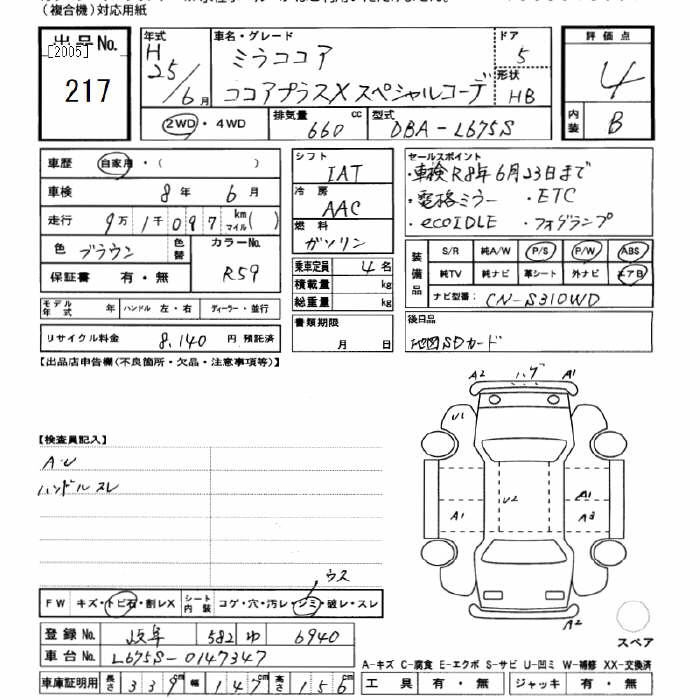 (複合機)対応用紙
出品No. [2005] 217
年式 H25/6月
車名・グレード ミラココア ココアプラスX スペシャルコーデ
ドア 5
形状 HB
2WD・4WD
排気量 660 cc
型式 DBA-L675S
評価点 4
内装 B
車歴 自家用・( )
車検 8年 6月
走行 9万1千097 km マイル( )
色 ブラウン 色替 カラーNo. R59
保証書 有・無
モデル年式 年 ハンドル 左・右 ディーラー・並行
リサイクル料金 8,140 円 預託済
シフト IAT
冷房 AAC
燃料 ガソリン
乗車定員 4名
積載量 kg
総重量 kg
書類期限 月 日
セールスポイント
・車検R8年6月23日まで
・電格ミラー ・ETC
・ecoIDLE ・フォグランプ
装備品 S/R 純A/W P/S P/W ABS
純TV 純ナビ 革シート 外ナビ エアB
ナビ型番: CN-S310WD
後日品
地図SDカード
【出品店申告欄(不良箇所・欠品・注意事項等)】
【検査員記入】
A・U
ハンドルスレ
A2 ハゲ A1
U1
U2
A1 A1
A3
A2
スペア
ウス
FW キズ・トビ石・割レX シート内装 コゲ・穴・汚レ・シミ・破レ・スレ
登録No. 岐阜 582 ゆ 6940
車台No. L675S-0147347
車庫証明用 長さ 339cm 幅 147cm 高さ 156cm
A-キズ C-腐食 E-エクボ S-サビ U-凹ミ W-補修 XX-交換済
工具 有・無 ジャッキ 有・無